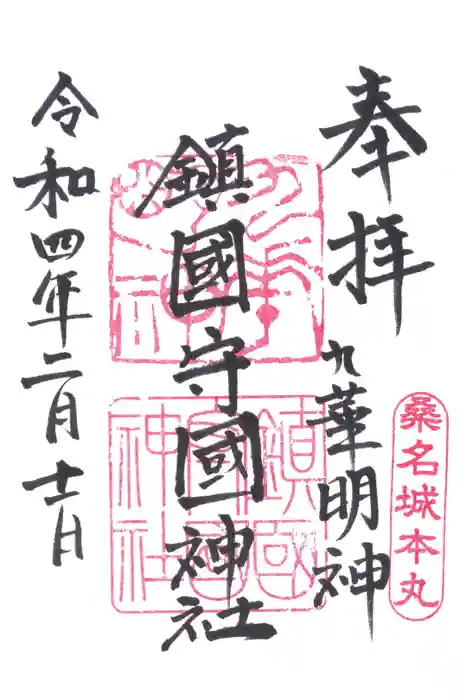 奉拝
九華明神
桑名城本丸
鎮國守國神社
令和四年二月十一日